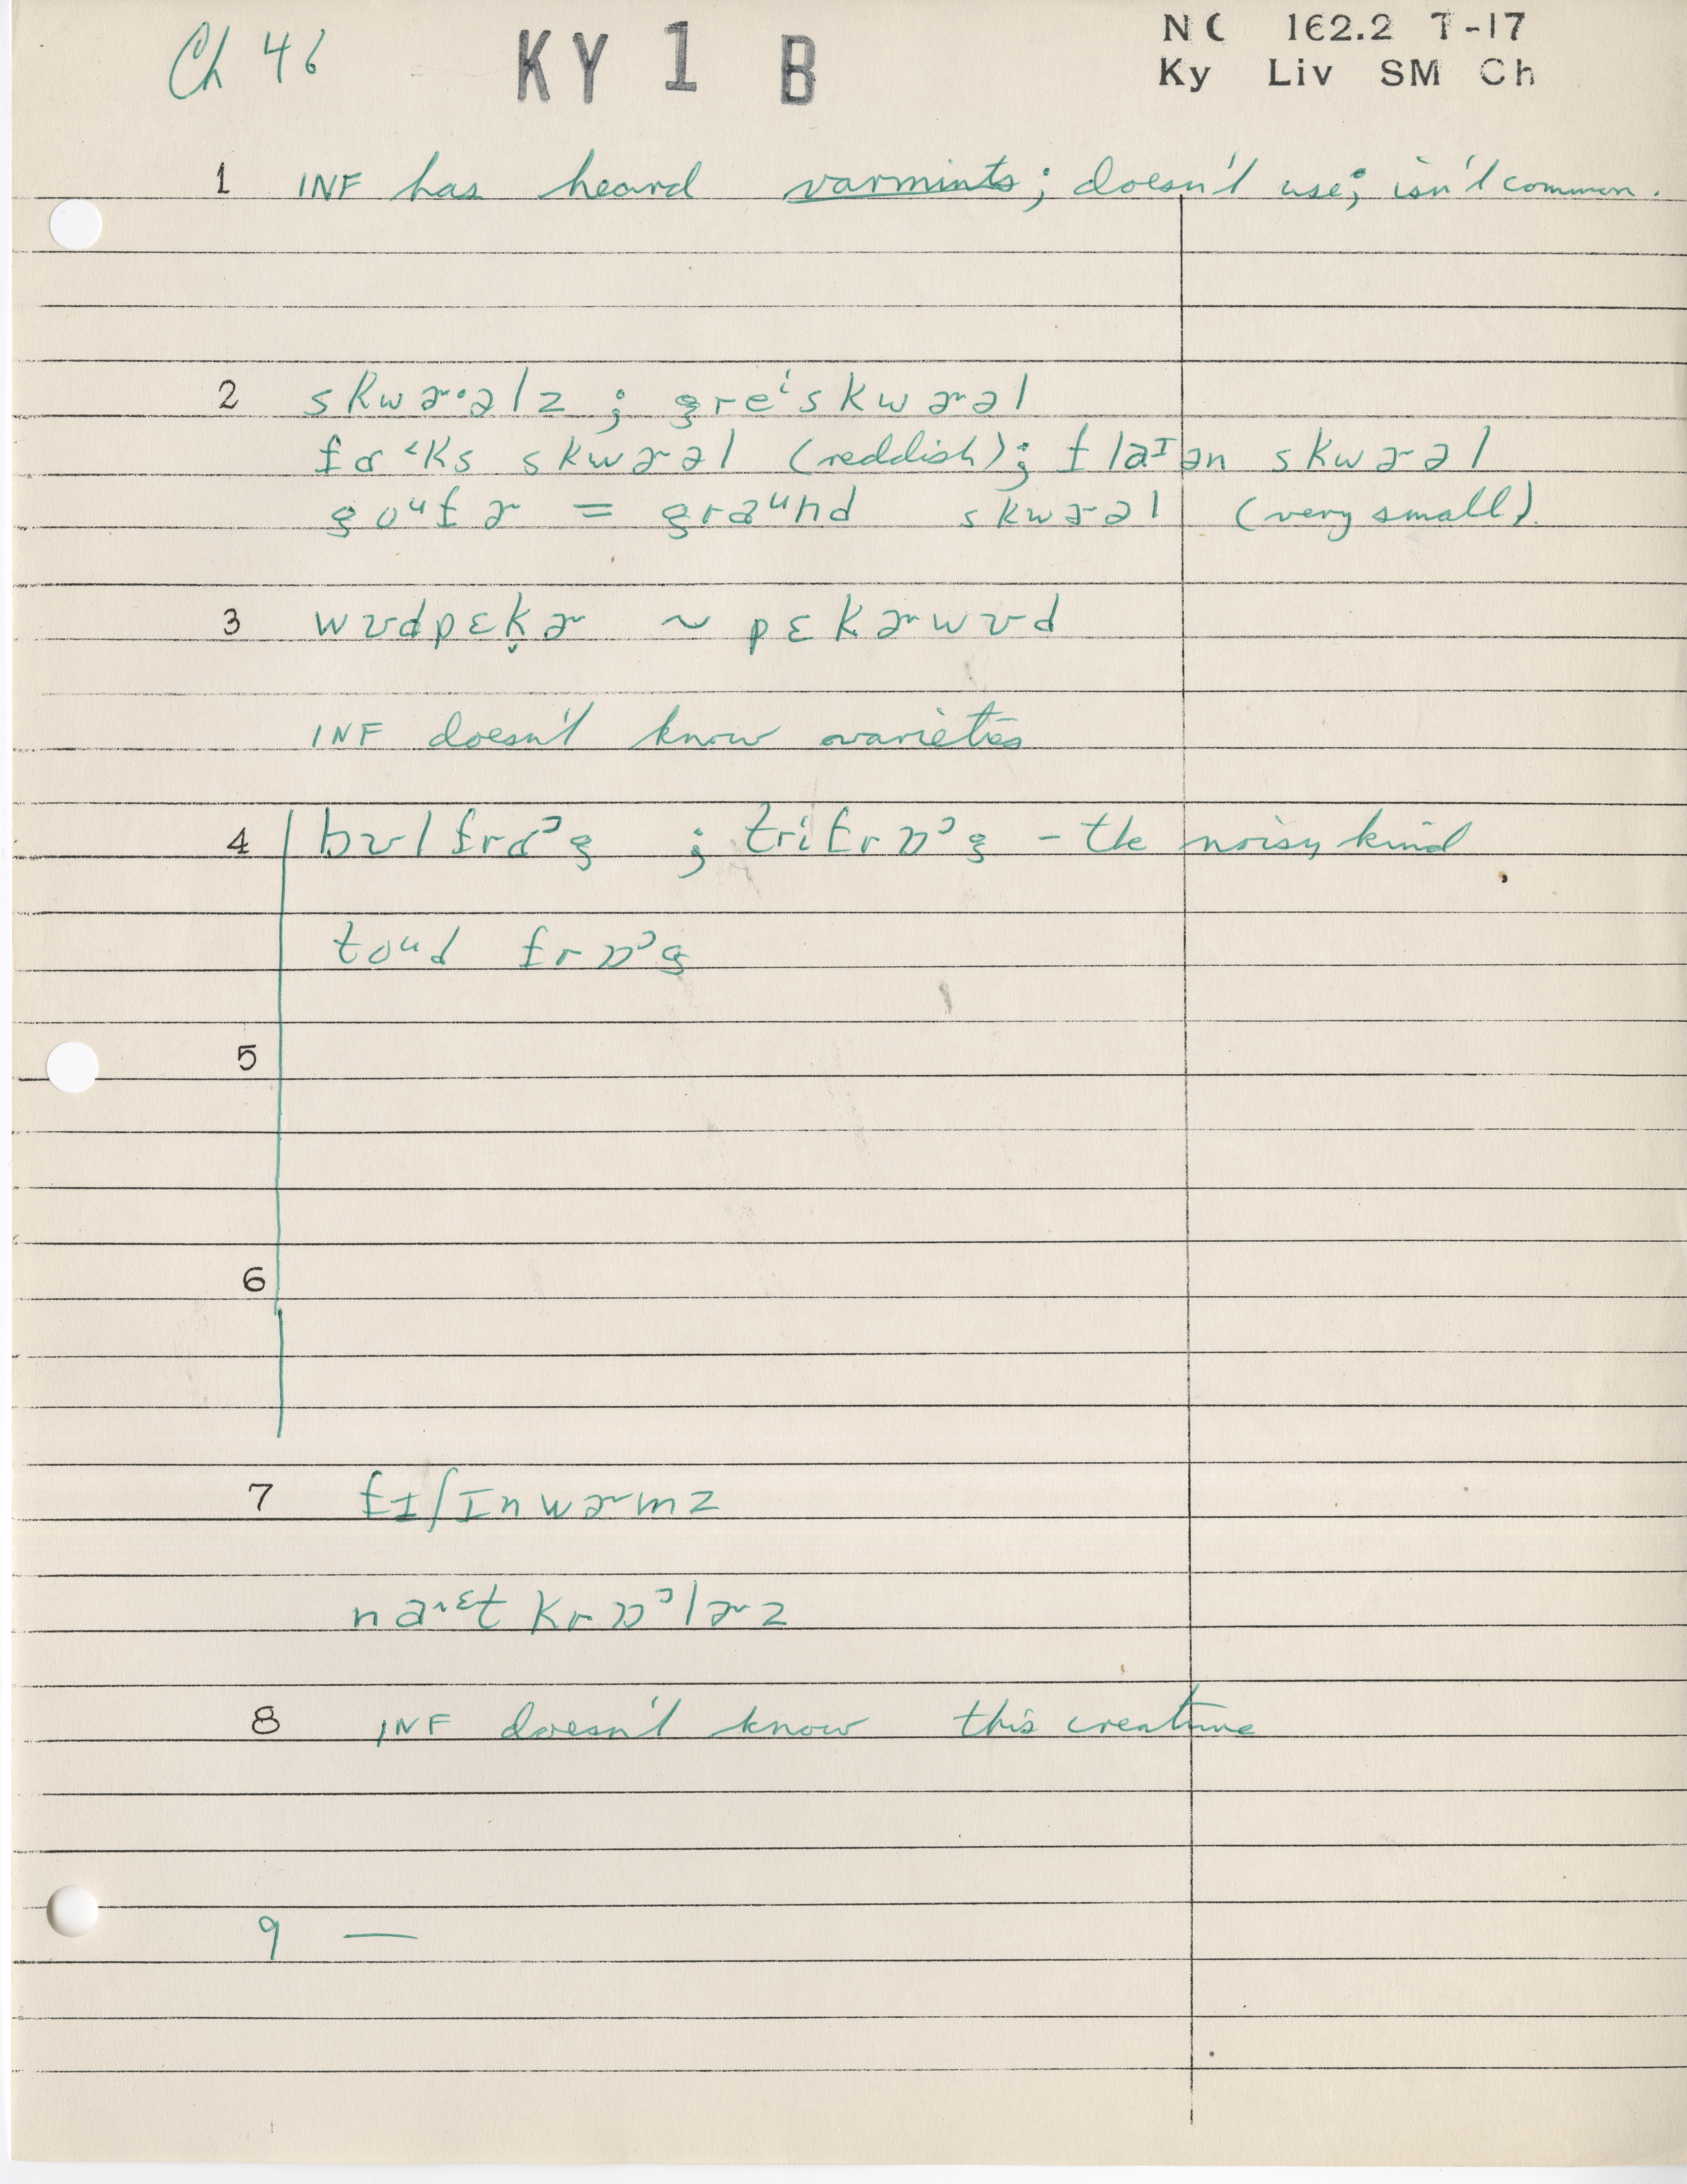 Ch 46 KY 1 B NC 162.2 T-17
Ky Liv SM Ch
1 INF has heard varmints; doesn't use; isn't common.
2 skwɚ·əlz ; greⁱskwɚəl
fɑ˂ks skwɚəl (reddish); flaᶦən skwɚəl
goᵘfɚ = graᵘnd skwɚəl (very small).
3 wʊdpɛk̬ɚ ~ pɛkɚwʊd
INF doesn't know varieties
4 bʊlfrɑᵓg ; trifrɒᵓg - the noisy kind
toᵘd frɒᵓg
5
6
7 fɪʃɪnwɚmz
naᵋt krɒᵓlɚz
8 INF doesn't know this creature
9 —